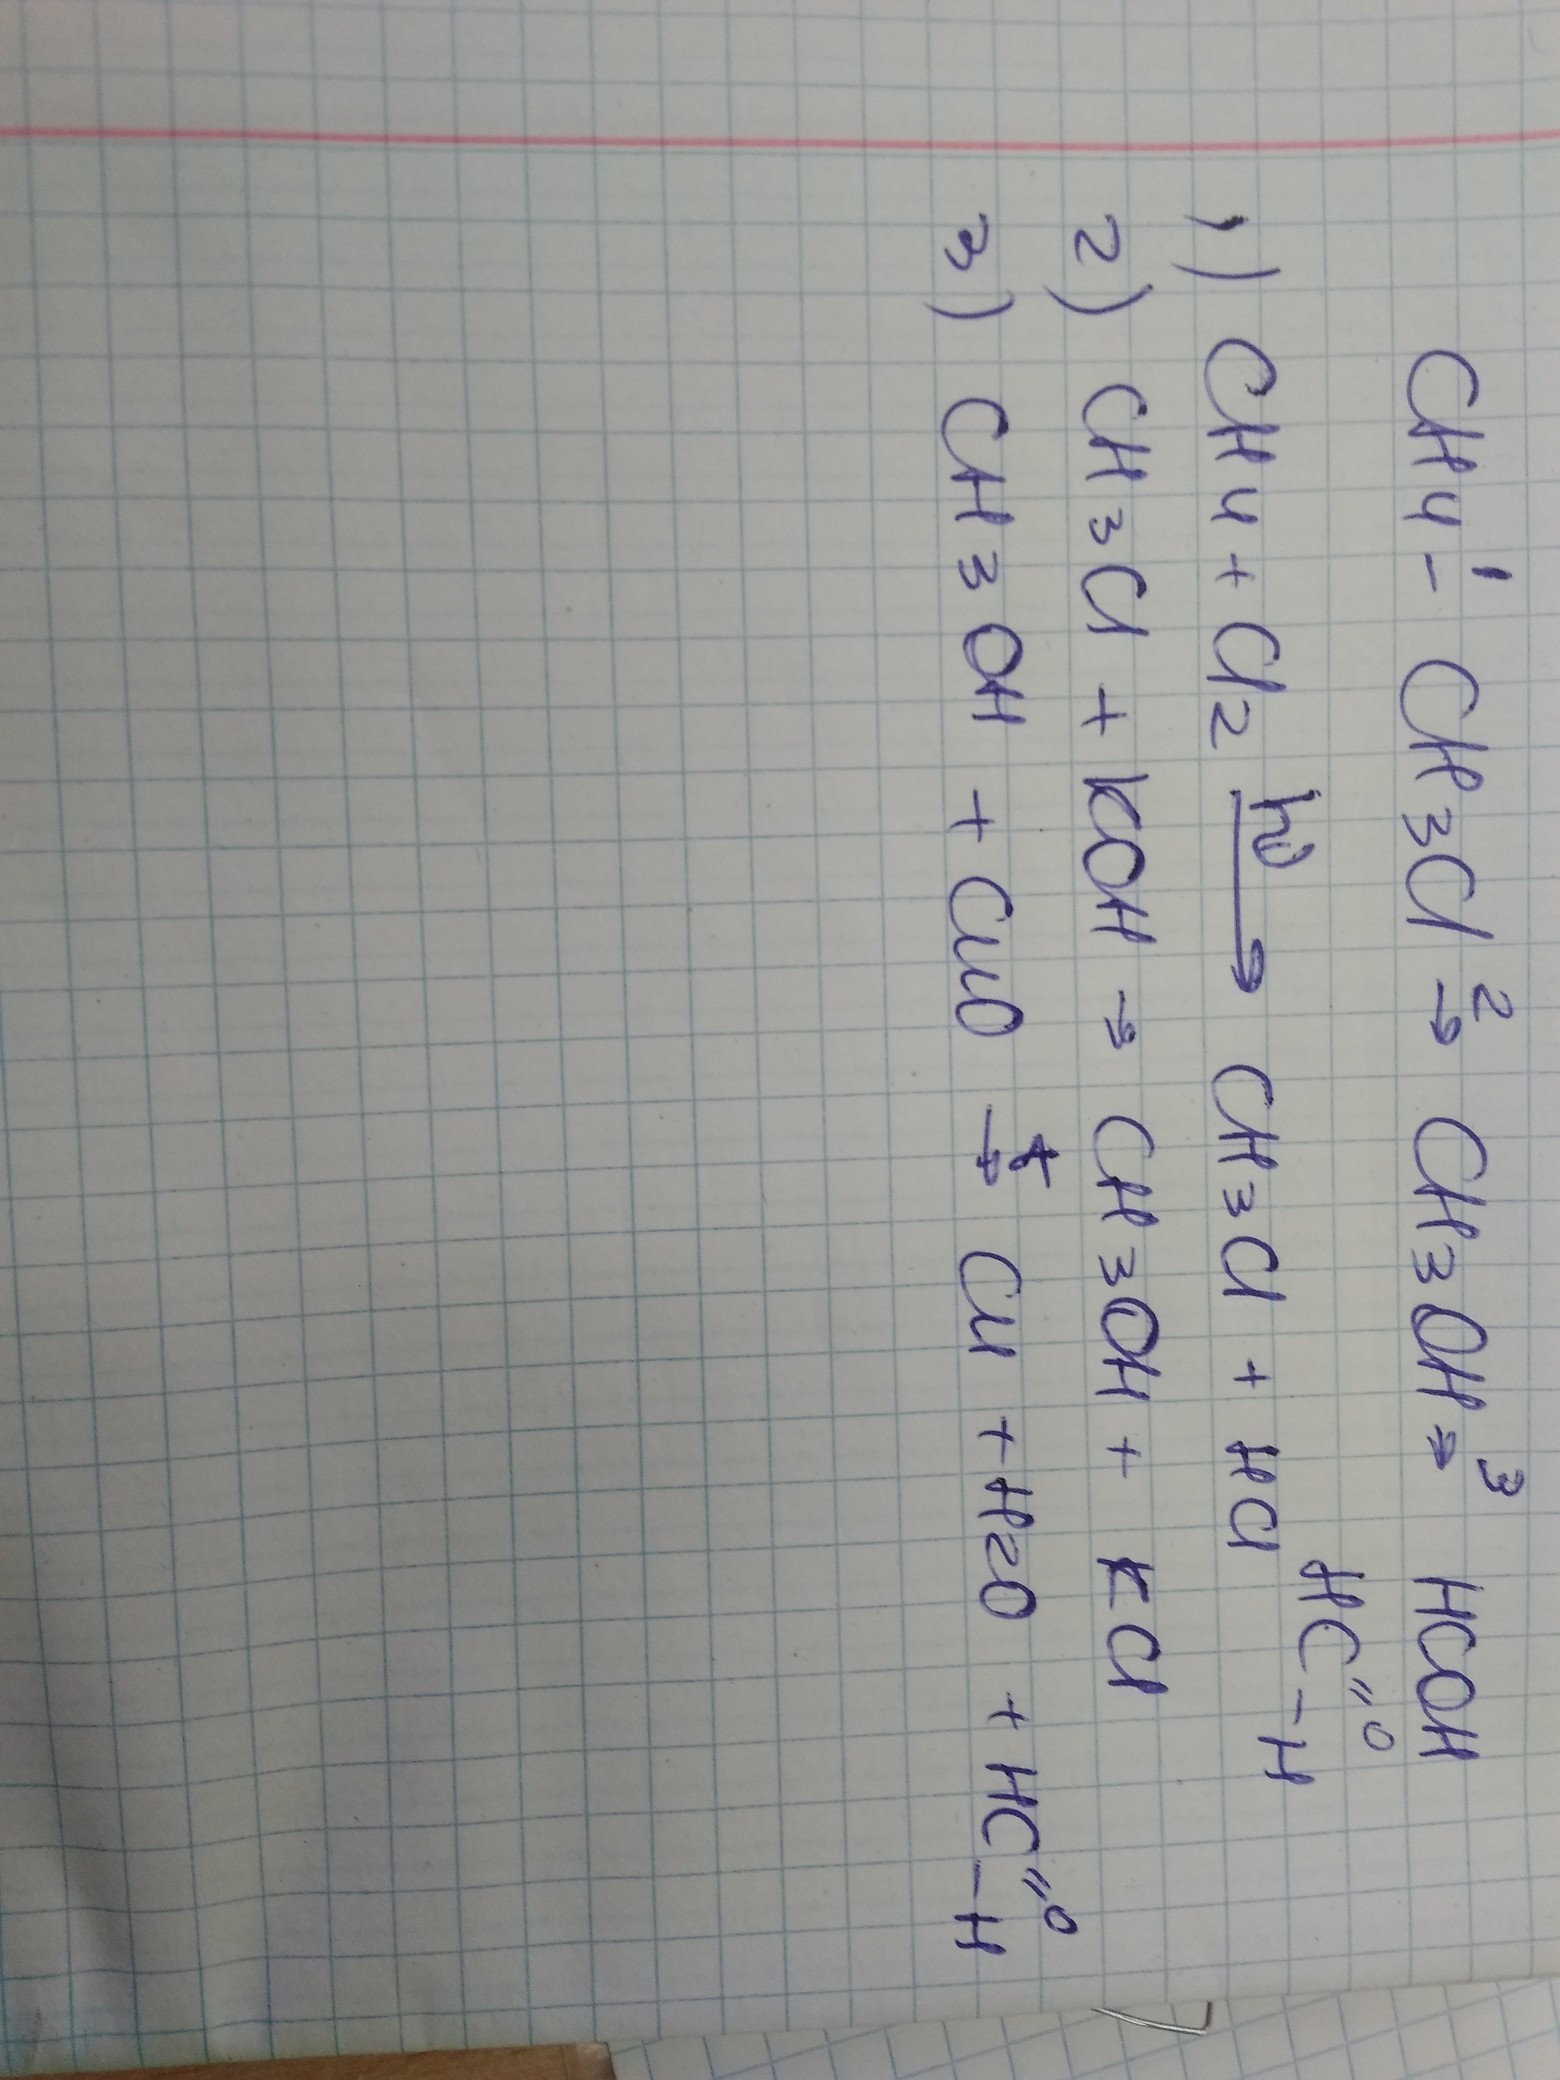 CH4 -1 CH3Cl →2 CH3OH →3 HCOH
HC=O -H
1) CH4 + Cl2 hν→ CH3Cl + HCl
2) CH3Cl + KOH → CH3OH + KCl
3) CH3OH + CuO t→ Cu + H2O + HC=O -H